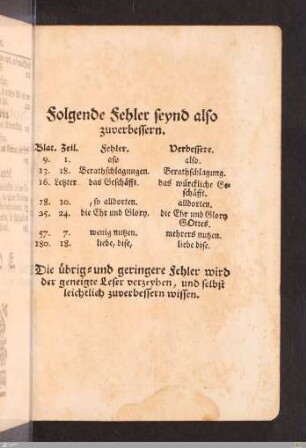 Folgende Fehler seynd also
zuverbessern.
Blat. Zeil. Fehler. Verbessere.
9. 1. aso also.
13. 18. Berathschlagungen. Berathschlagung.
16. Letzter das Geschäfft. das würckliche Ge-
schäfft.
18. 10. , so alldorten. alldorten.
25. 24. die Ehr und Glory. die Ehr und Glory
GOttes.
57. 7. wenig nutzen. mehrers nutzen.
180. 18. liebe, dise, liebe dise.
Die übrig- und geringere Fehler wird
der geneigte Leser verzeyhen, und selbst
leichtlich zuverbessern wissen.